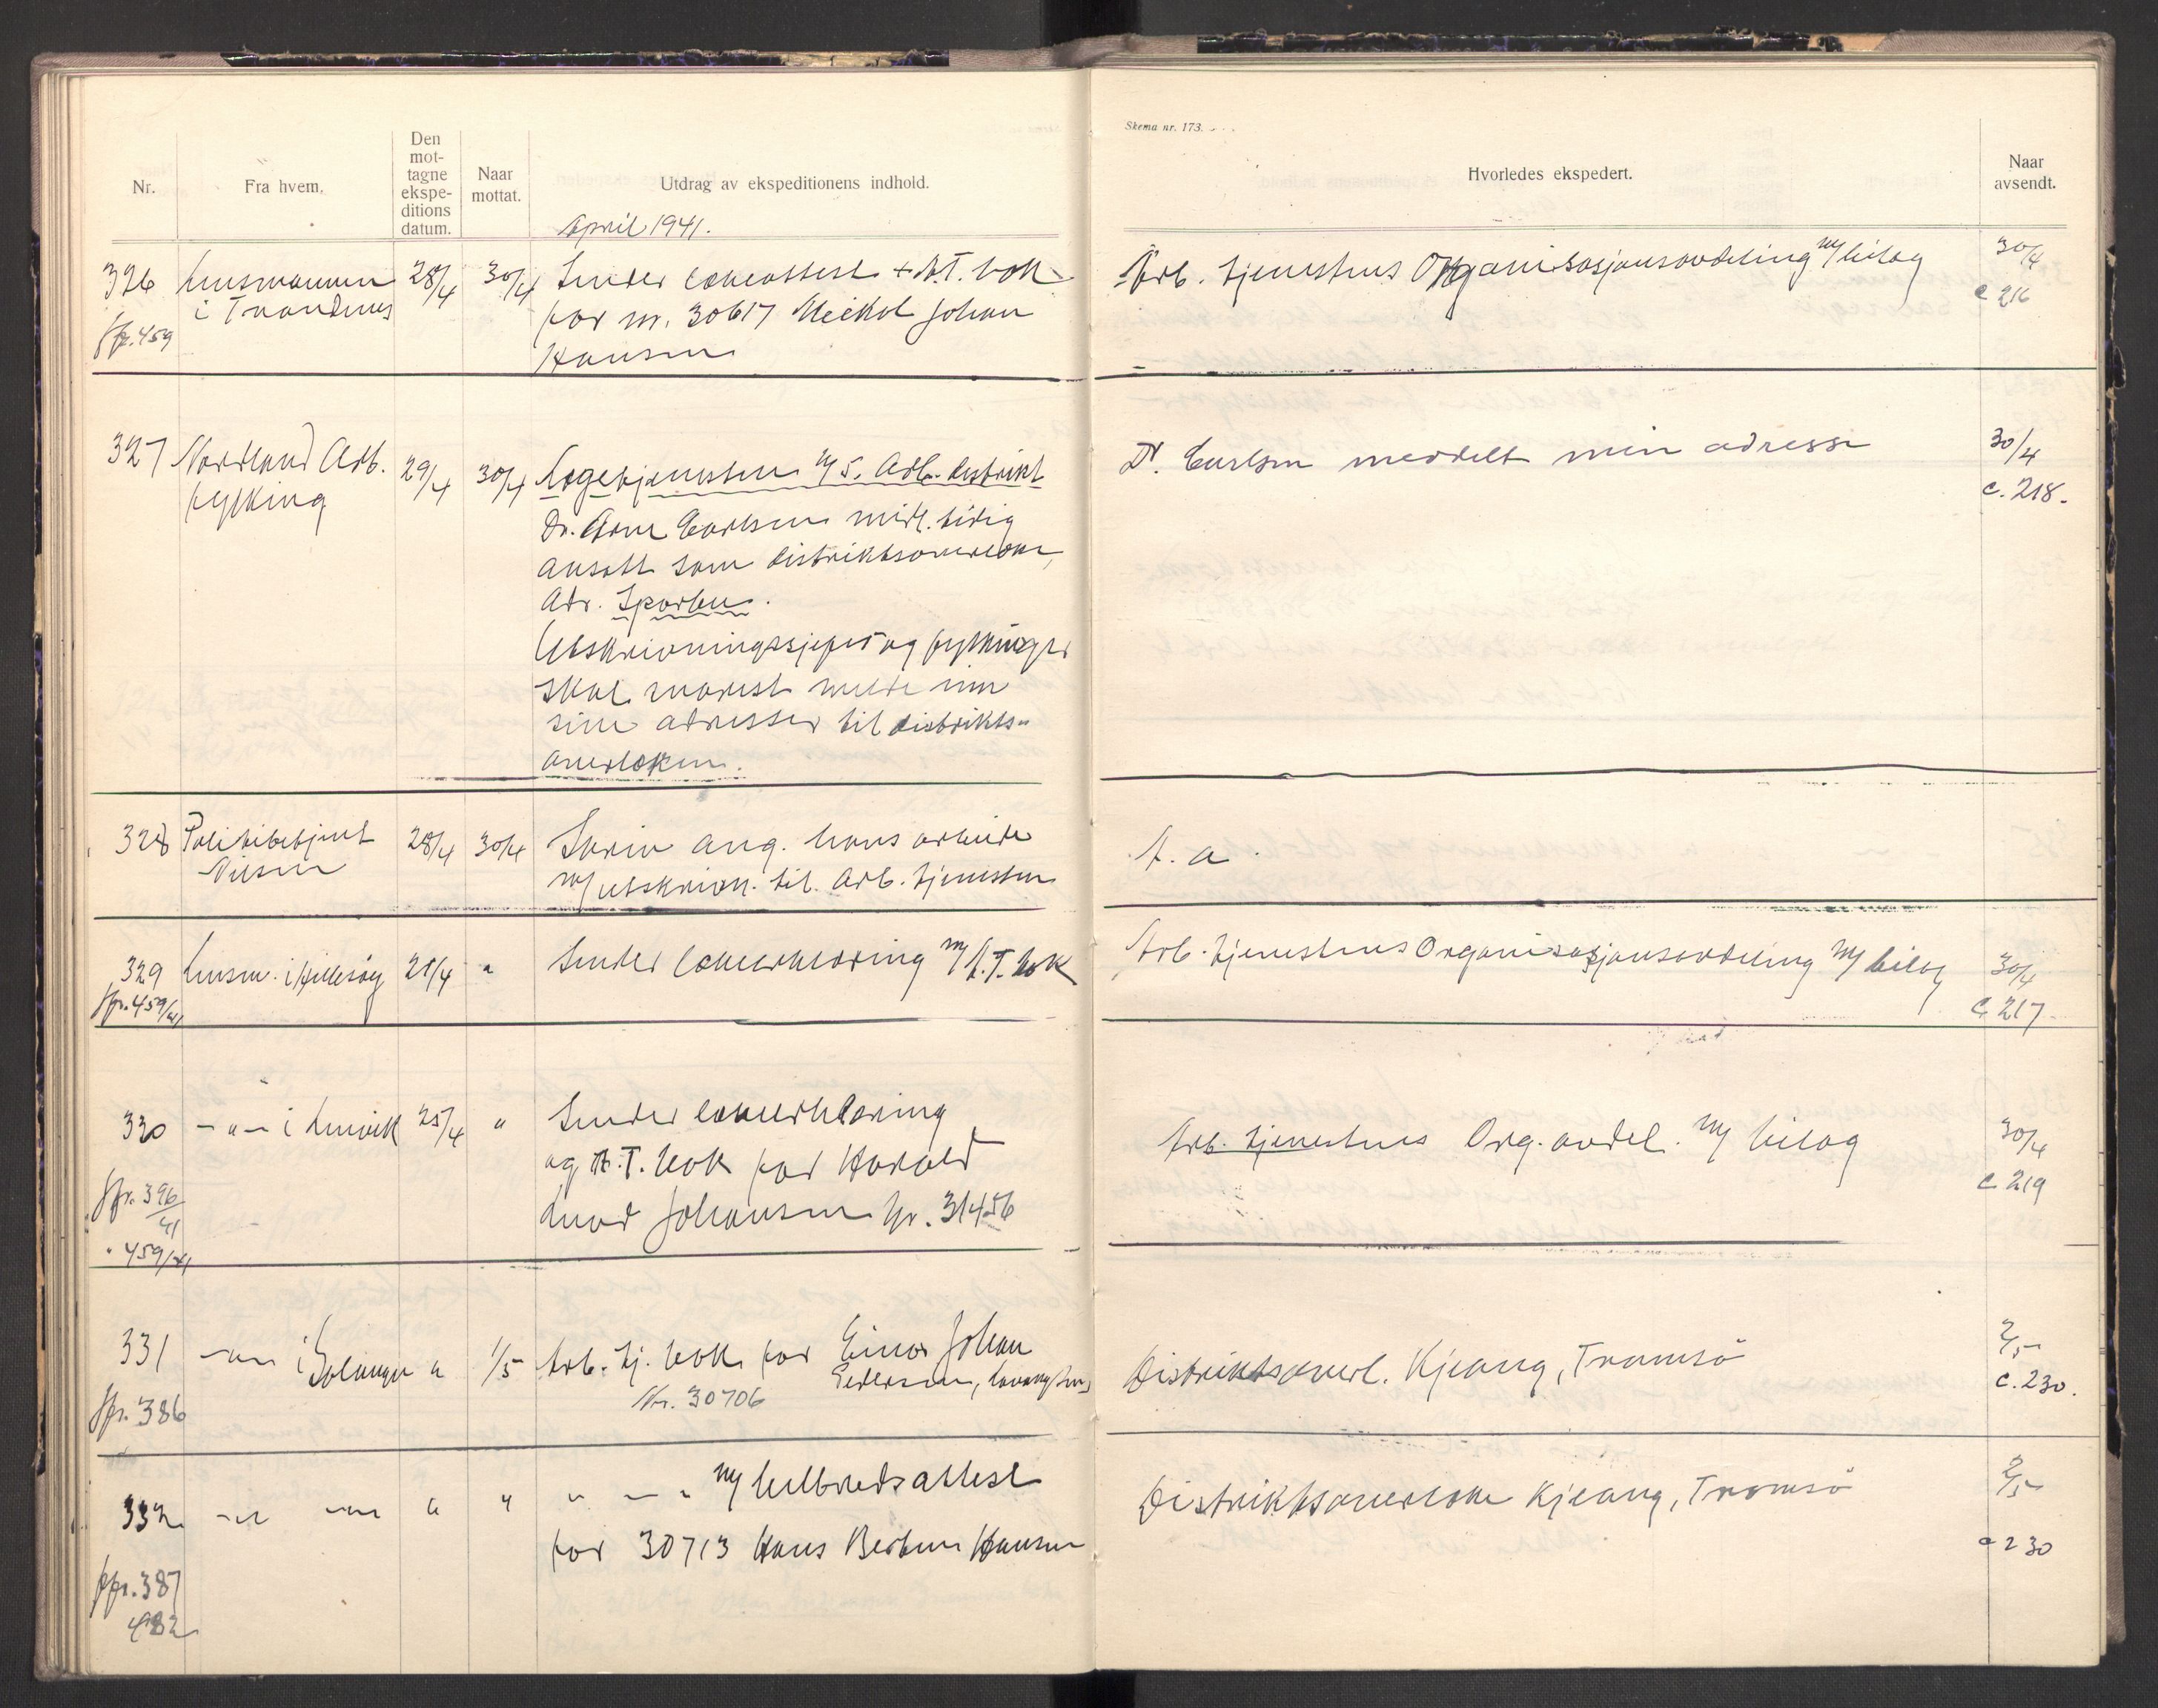 Skema nr. 173.
Nr.
Fra hvem.
Den
mot-
tagne
ekspe-
ditions
datum.
Naar
mottat.
Utdrag av ekspeditionens indhold.
Hvorledes ekspedert.
Naar
avsendt.
April 1941.
326 Lensmannen 28/4 30/4 Sender legeattest + A.T. bok
i Trondenes
for nr. 30617 Meikel Johan
Hansen
Jfr. 459
Arb. tjenestens Organisasjonsavdeling m/ bilag 30/4
c 216
327 Nordland Arb. 29/4 30/4 Legetjenesten i 5. Arb. distrikt
fylking
Dr. Arne Carlsen midl. tidig
ansatt som distriktsoverlege,
Adr. Sparbu.
Utskrivningssjefer og fylkinger
skal snarest melde inn
sine adresser til distrikts-
overlegen.
Dr. Carlsen meddelt min adresse 30/4
c. 218.
328 Politibetjent 28/4 30/4 Skriv ang. hans arbeide
Nilsen
m/ utskrivn. til Arb. tjenesten
A. a.
329 Lensm. i Hillesøy 28/4 " Sender legeerklæring m/ A.T. bok
Jfr. 459/41
Arb. tjenestens Organisasjonsavdeling m/ bilag 30/4
c 217
330 - " - i Lenvik 25/4 " Sender legeerklæring
og A.T. bok for Harald
Johansen Nr. 31456
Jfr. 396/41
" 459/41
Arb. tjenestens Org. avdel. m/ bilag 30/4
c. 219
331 - " - i Salangen " 1/5 Arb. tj. bok for Einar Johan
Pedersen,
Nr. 30706
Jfr. 386
Distriktsoverl. Kjeang, Tromsö 2/5
c. 230.
332 - " - - " - " " " - " m/ helbredsattest
for 30713 Hans Hansen
Jfr. 387
482
Distriktsoverlege Kjeang, Tromsö 2/5
c 230